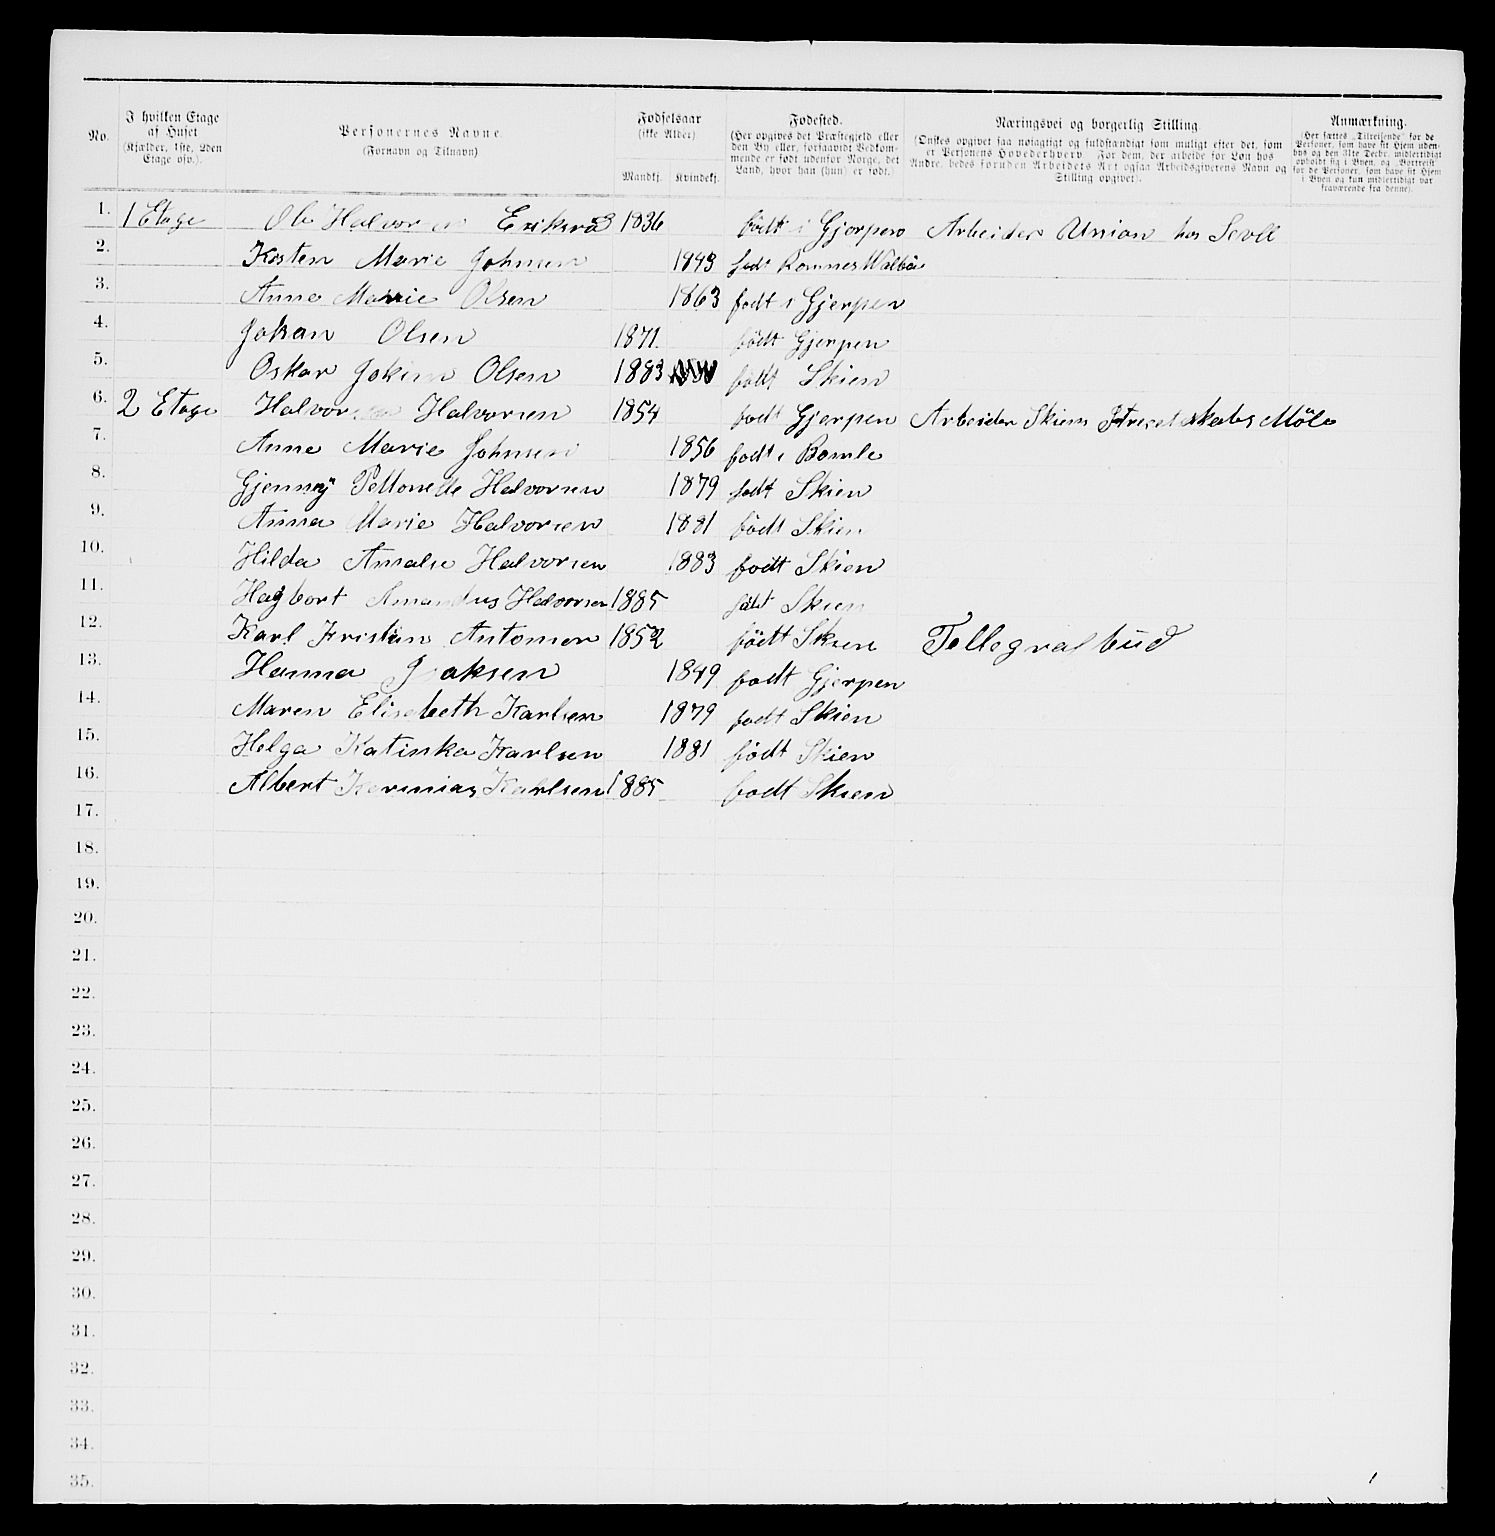 No.
I hvilken Etage af Huset (Kjælder, 1ste, 2den Etage osv.).
Personernes Navne. (Fornavn og Tilnavn)
Fødselsaar (ikke Alder)
Mandkj. Kvindekj.
Fødested. (Her opgives det Præstegjeld eller den By eller, forsaavidt Vedkommende er født udenfor Norge, det Land, hvor han (hun) er født.)
Næringsvei og borgerlig Stilling. (Ønskes opgivet saa nøiagtigt og fuldstændigt som muligt efter det, som er Personens Hovederhverv. For dem, der arbeide for Løn hos Andre, bedes foruden Arbeidets Art ogsaa Arbeidsgiverens Navn og Stilling opgivet).
Anmærkning. (Her sættes „Tilreisende“ for de Personer, som have sit Hjem udenbys og den 31te Decbr. midlertidigt opholdt sig i Byen, og „Bortreist“ for de Personer, som have sit Hjem i Byen og kun midlertidigt var fraværende fra denne).
1. 1 Etage Ole Halvorsen 1836 födt i Gjerpen Arbeider Union hos
2. Kisten Marie Johnsen 1843 födt
3. Anne Marie Olsen 1863 födt i Gjerpen
4. Johan Olsen 1871. födt Gjerpen
5. Oskar Jokim Olsen 1883 födt Skien
6. 2 Etage Halvor Halvorsen 1854 födt Gjerpen Arbeider Skiens Möle
7. Anne Marie Johnsen 1856 födt i Bamle
8. Gjenny Pettonelle Halvorsen 1879 födt Skien
9. Anna Marie Halvorsen 1881 födt Skien
10. Hilda Amalie Halvorsen 1883 födt Skien
11. Hagbart Amandus Halvorsen 1885 födt Skien
12. Karl Kristian Antonsen 1852 födt Skien Tellegraf bud
13. Hanna Isaksen 1849 födt Gjerpen
14. Maren Elisebeth Karlsen 1879 födt Skien
15. Helga Katinka Karlsen 1881 födt Skien
16. Albert Karlsen 1885 födt Skien
17.
18.
19.
20.
21.
22.
23.
24.
25.
26.
27.
28.
29.
30.
31.
32.
33.
34.
35.